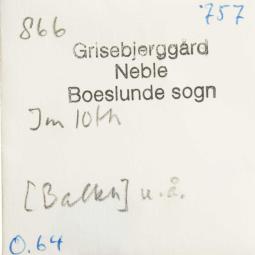 866
757
Grisebjerggård
Neble
Boeslunde sogn
Im 10th
[Balken] u.å.
0.64